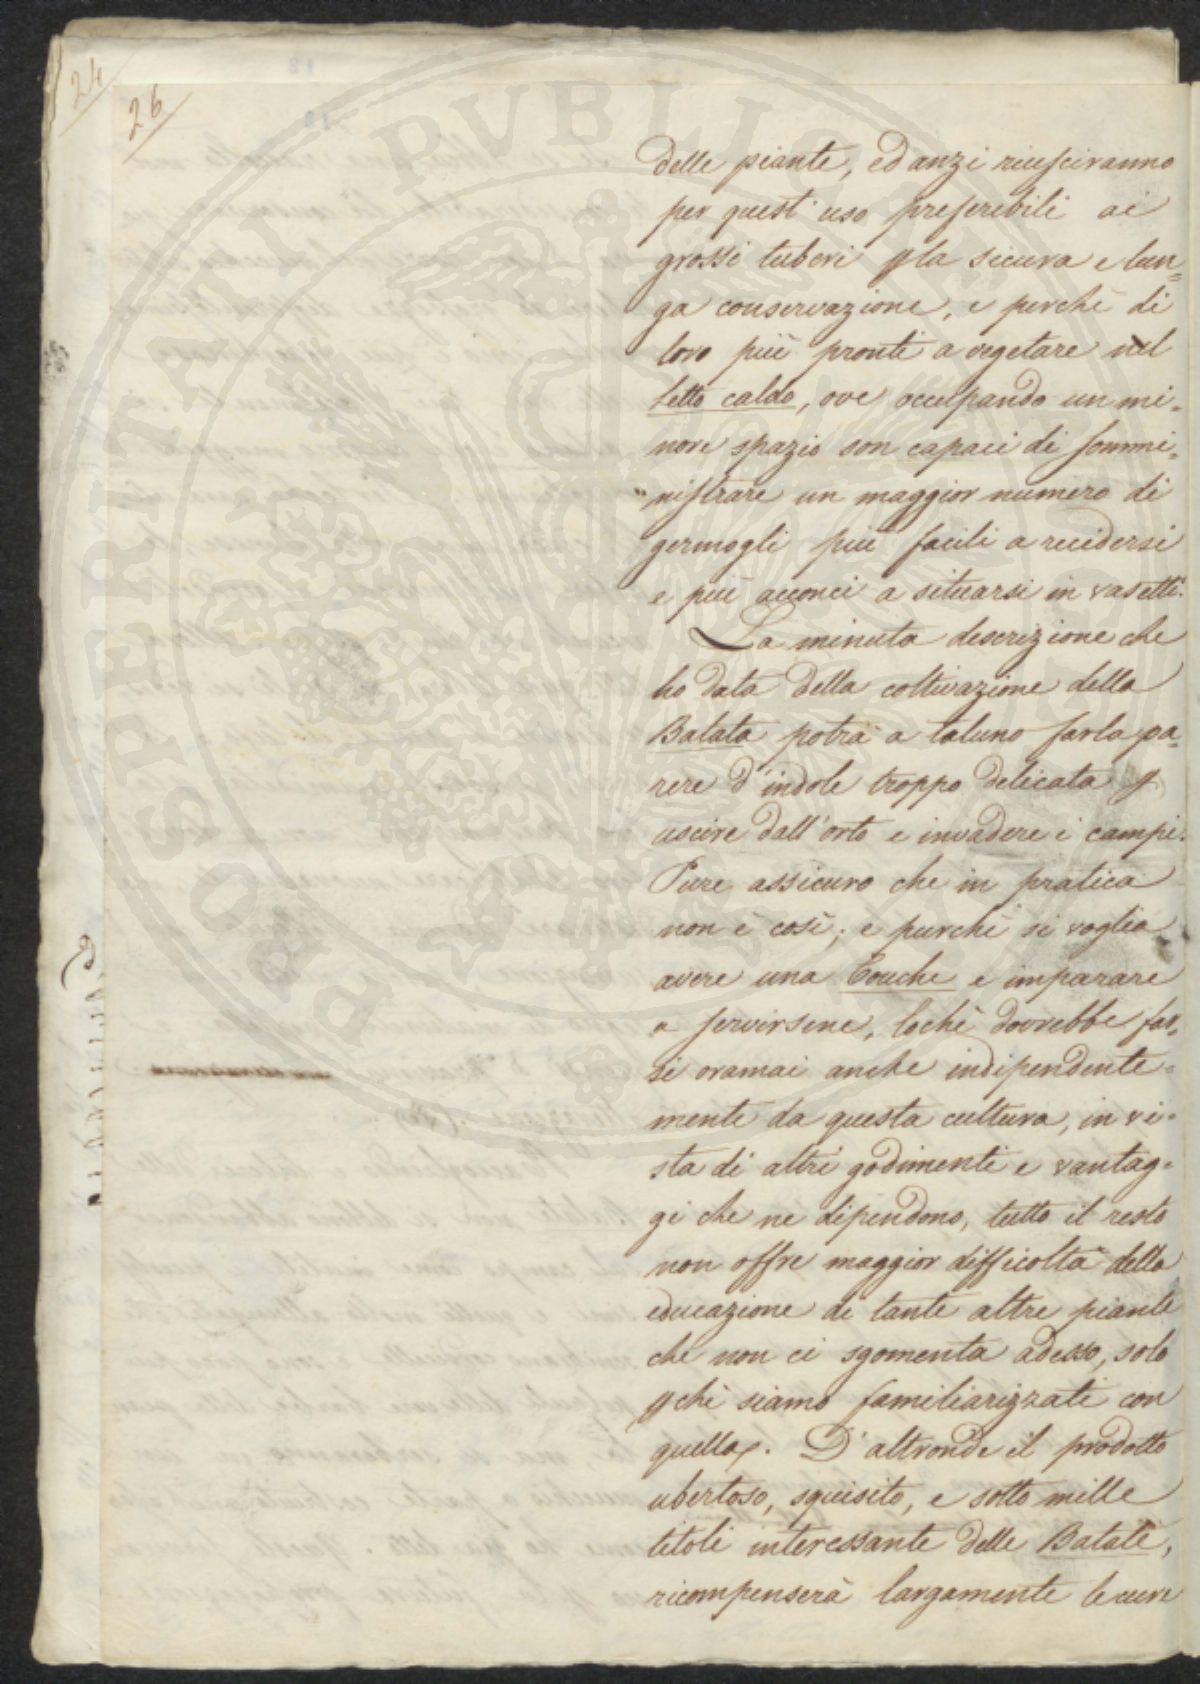 24
26
delle piante, ed anzi riusciranno
per quest' uso preferibili ai
grossi tuberi p la sicura e lun=
ga conservazione, e perchè di
loro più pronti a vegetare nel
letto caldo, ove occupando un mi=
nore spazio son capaci di sommi=
nistrare un maggior numero di
germogli più facili a recidersi
e più acconci a situarsi in vasetti.
La minuta descrizione che
ho data della coltivazione della
Batata potrà a taluno farla pa=
rere d'indole troppo delicata p
uscire dall'orto e invadere i campi.
Pure assicuro che in pratica
non è così; e purchè si voglia
avere una Couche e imparare
a servirsene, lochè dovrebbe far=
si oramai anche indipendente=
mente da questa cultura, in vi=
sta di altri godimenti e vantag=
gi che ne dipendono, tutto il resto
non offre maggior difficoltà della
educazione di tante altre piante
che non ci sgomenta adesso, solo
pchè siamo familiarizzati con
quella. D'altronde il prodotto
ubertoso, squisito, e sotto mille
titoli interessante delle Batate,
ricompenserà largamente le cure
PROSPERITATI PVBLICAE